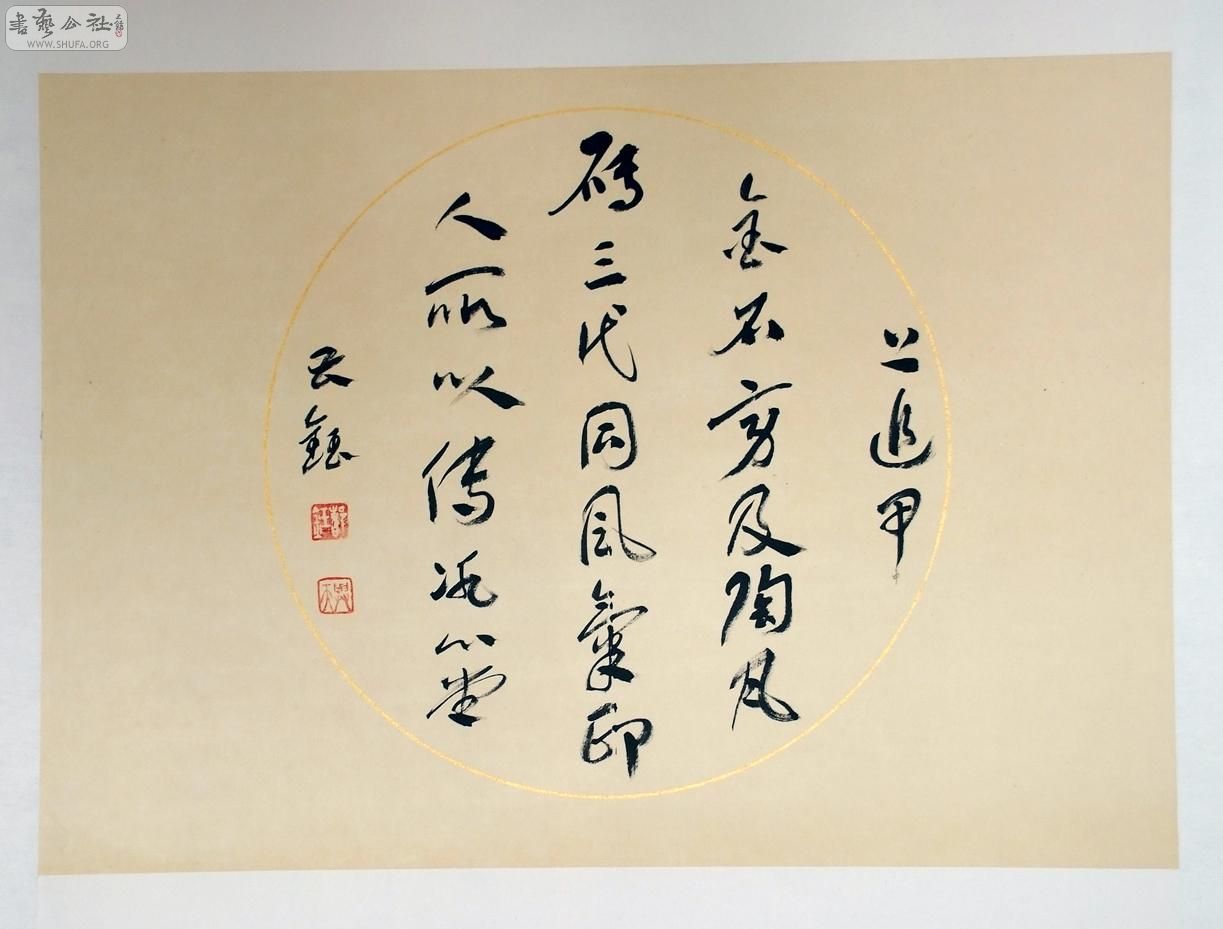 書藝公社
WWW.SHUFA.ORG
上追甲
金石旁及陶瓦
磚三代同風氣印
人所以傳冰心堂